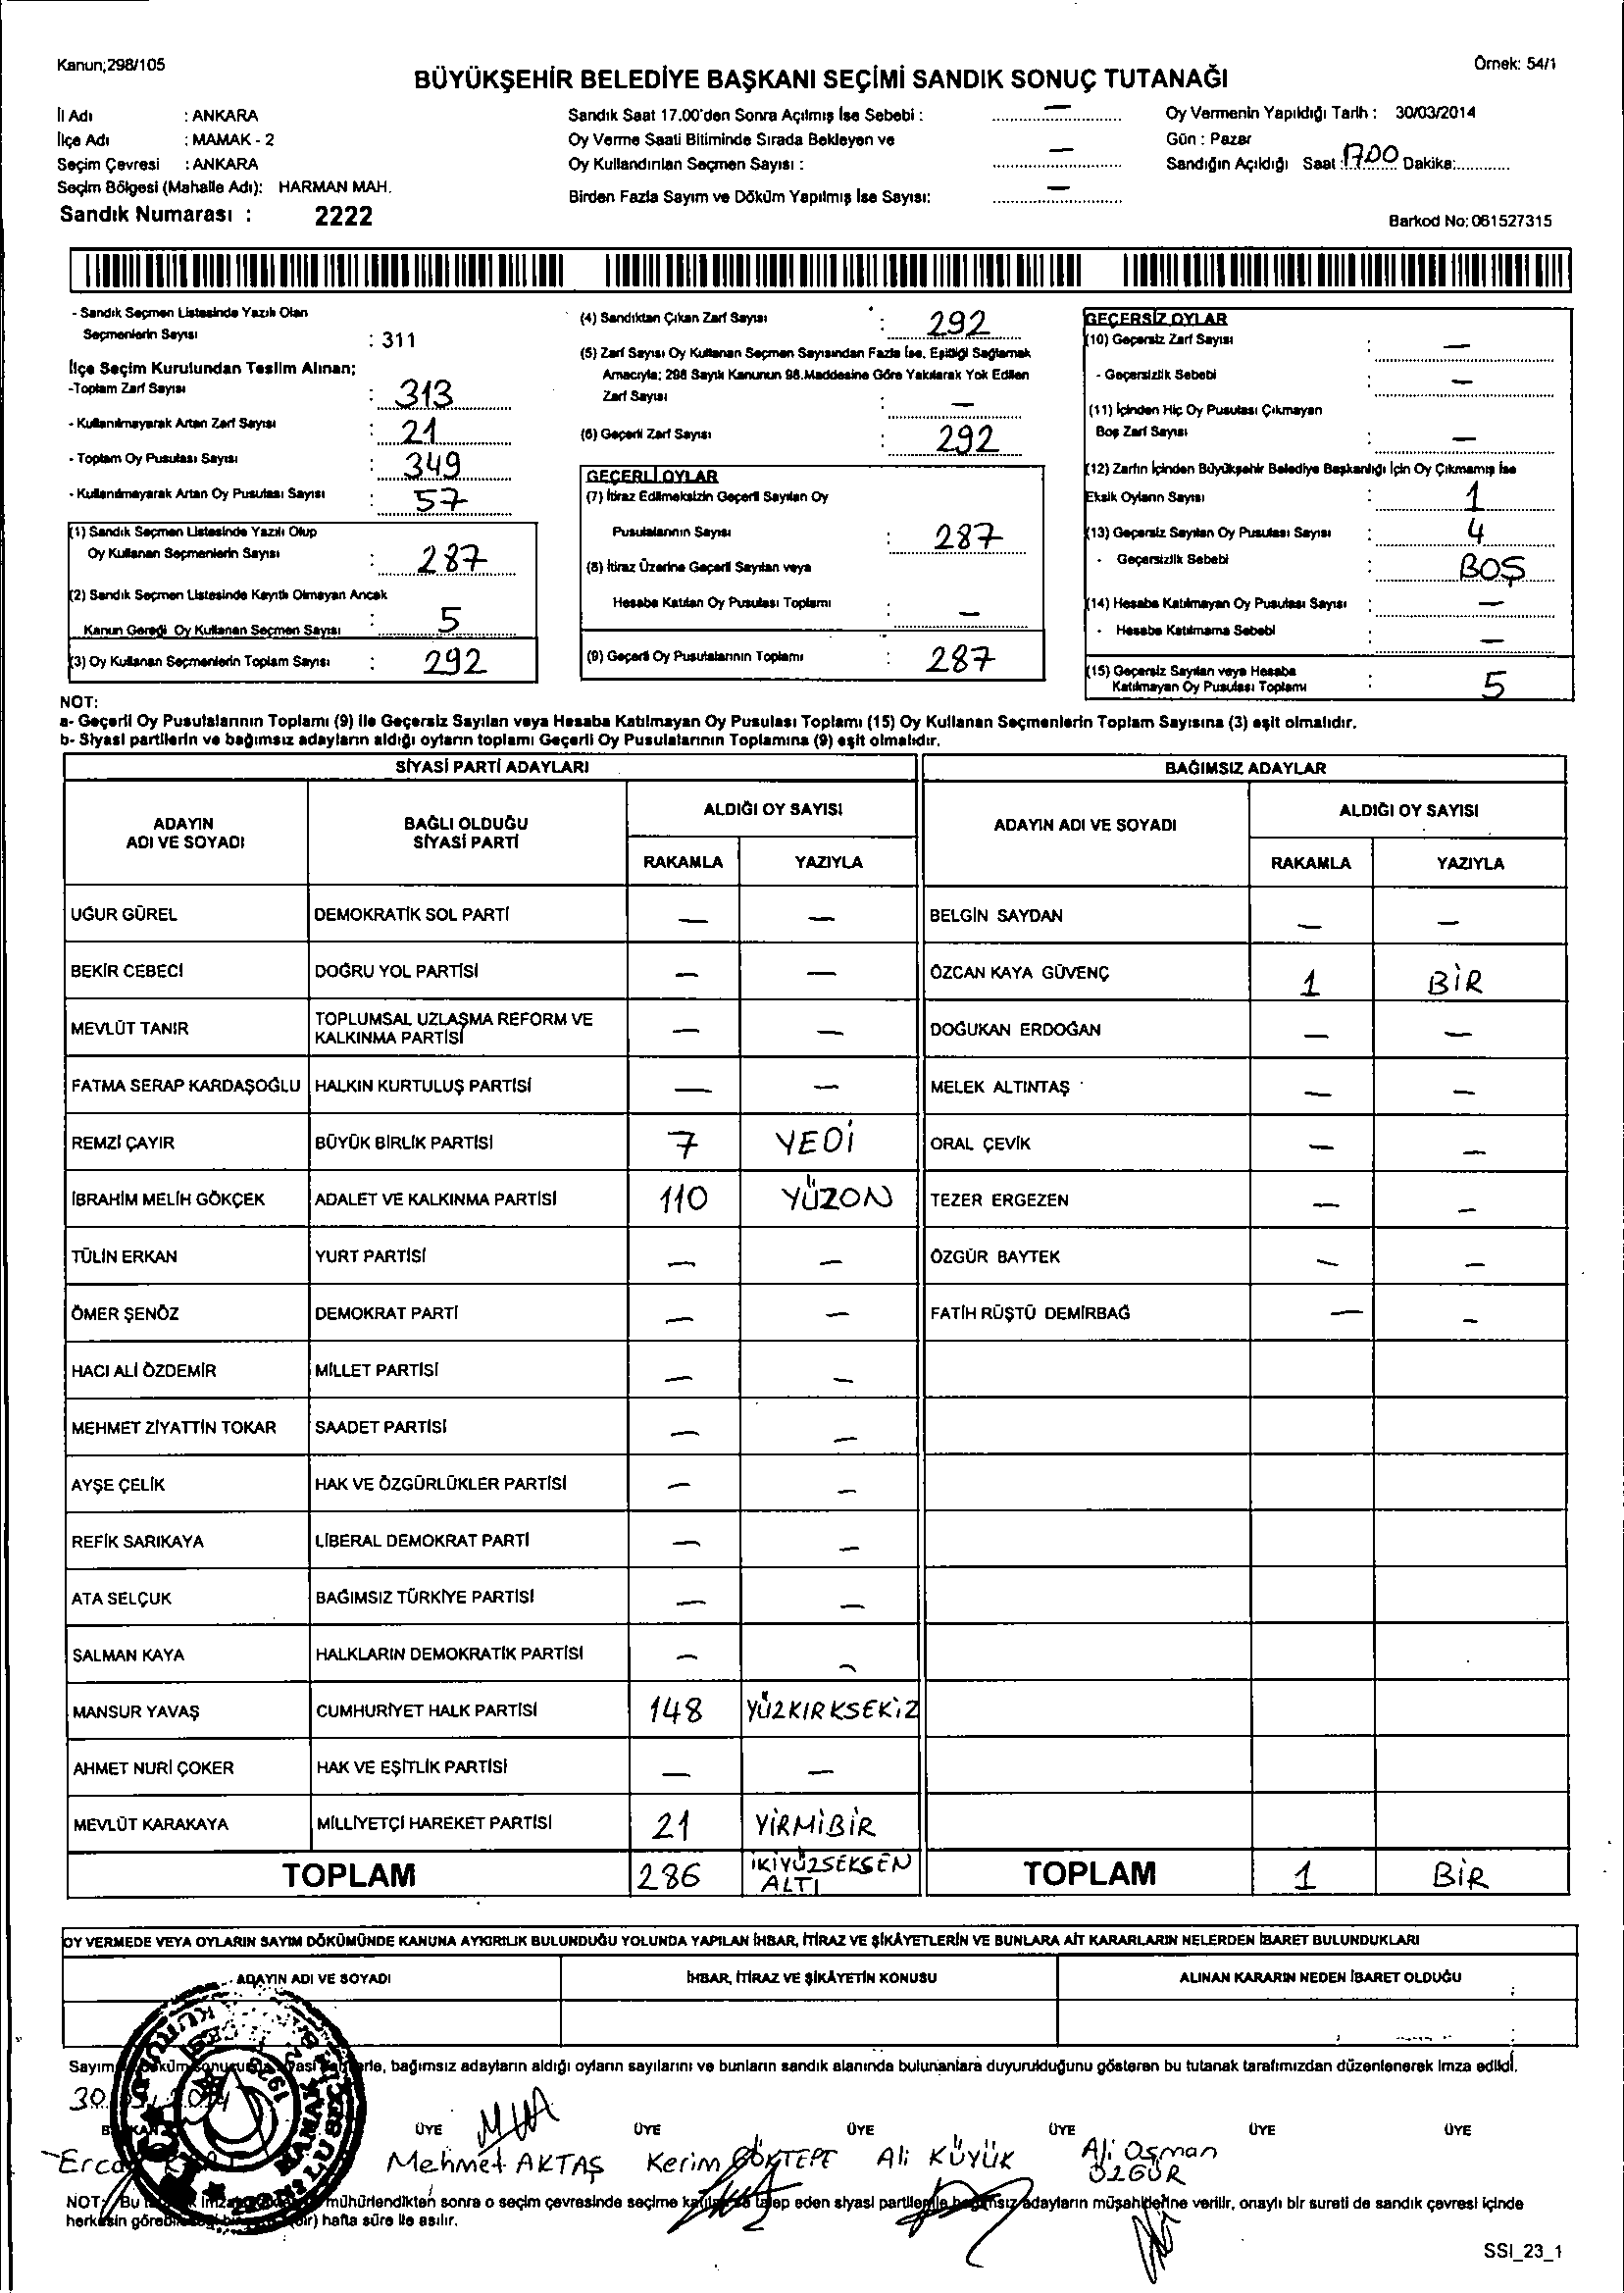 Kanun;298/105
Örnek: 54/1
BÜYÜKŞEHİR BELEDİYE BAŞKANI SEÇİMİ SANDIK SONUÇ TUTANAĞI
İl Adı : ANKARA
İlçe Adı : MAMAK - 2
Seçim Çevresi : ANKARA
Seçim Bölgesi (Mahalle Adı): HARMAN MAH.
Sandık Numarası : 2222
Sandık Saat 17.00'den Sonra Açılmış İse Sebebi : —
Oy Verme Saati Bitiminde Sırada Bekleyen ve
Oy Kullandırılan Seçmen Sayısı : —
Birden Fazla Sayım ve Döküm Yapılmış İse Sayısı: —
Oy Vermenin Yapıldığı Tarih : 30/03/2014
Gün : Pazar
Sandığın Açıldığı Saat : 17.00 Dakika:.............
Barkod No: 061527315
- Sandık Seçmen Listesinde Yazılı Olan
Seçmenlerin Sayısı : 311
İlçe Seçim Kurulundan Teslim Alınan;
-Toplam Zarf Sayısı : 313
- Kullanılmayarak Artan Zarf Sayısı : 21
- Toplam Oy Pusulası Sayısı : 349
- Kullanılmayarak Artan Oy Pusulası Sayısı : 57
(1) Sandık Seçmen Listesinde Yazılı Olup
Oy Kullanan Seçmenlerin Sayısı : 287
(2) Sandık Seçmen Listesinde Kayıtlı Olmayan Ancak
Kanun Gereği Oy Kullanan Seçmen Sayısı : 5
(3) Oy Kullanan Seçmenlerin Toplam Sayısı : 292
(4) Sandıktan Çıkan Zarf Sayısı : 292
(5) Zarf Sayısı Oy Kullanan Seçmen Sayısından Fazla İse, Eşitliği Sağlamak
Amacıyla; 298 Sayılı Kanunun 98.Maddesine Göre Yakılarak Yok Edilen
Zarf Sayısı : —
(6) Geçerli Zarf Sayısı : 292
GEÇERLİ OYLAR
(7) İtiraz Edilmeksizin Geçerli Sayılan Oy
Pusulalarının Sayısı : 287
(8) İtiraz Üzerine Geçerli Sayılan veya
Hesaba Katılan Oy Pusulası Toplamı : —
(9) Geçerli Oy Pusulalarının Toplamı : 287
GEÇERSİZ OYLAR
(10) Geçersiz Zarf Sayısı : —
- Geçersizlik Sebebi : —
(11) İçinden Hiç Oy Pusulası Çıkmayan
Boş Zarf Sayısı : —
(12) Zarfın İçinden Büyükşehir Belediye Başkanlığı İçin Oy Çıkmamış İse
Eksik Oyların Sayısı : 1
(13) Geçersiz Sayılan Oy Pusulası Sayısı : 4
- Geçersizlik Sebebi : BOŞ
(14) Hesaba Katılmayan Oy Pusulası Sayısı : —
- Hesaba Katılmama Sebebi : —
(15) Geçersiz Sayılan veya Hesaba
Katılmayan Oy Pusulası Toplamı : 5
NOT:
a- Geçerli Oy Pusulalarının Toplamı (9) ile Geçersiz Sayılan veya Hesaba Katılmayan Oy Pusulası Toplamı (15) Oy Kullanan Seçmenlerin Toplam Sayısına (3) eşit olmalıdır.
b- Siyasi partilerin ve bağımsız adayların aldığı oyların toplamı Geçerli Oy Pusulalarının Toplamına (9) eşit olmalıdır.
SİYASİ PARTİ ADAYLARI
BAĞIMSIZ ADAYLAR
ADAYIN ADI VE SOYADI
BAĞLI OLDUĞU SİYASİ PARTİ
ALDIĞI OY SAYISI
RAKAMLA YAZIYLA
ADAYIN ADI VE SOYADI
ALDIĞI OY SAYISI
RAKAMLA YAZIYLA
UĞUR GÜREL DEMOKRATİK SOL PARTİ — — BELGİN SAYDAN — —
BEKİR CEBECİ DOĞRU YOL PARTİSİ — — ÖZCAN KAYA GÜVENÇ 1 BİR
MEVLÜT TANIR TOPLUMSAL UZLAŞMA REFORM VE KALKINMA PARTİSİ — — DOĞUKAN ERDOĞAN — —
FATMA SERAP KARDAŞOĞLU HALKIN KURTULUŞ PARTİSİ — — MELEK ALTINTAŞ — —
REMZİ ÇAYIR BÜYÜK BİRLİK PARTİSİ 7 YEDİ ORAL ÇEVİK — —
İBRAHİM MELİH GÖKÇEK ADALET VE KALKINMA PARTİSİ 110 YÜZON TEZER ERGEZEN — —
TÜLİN ERKAN YURT PARTİSİ — — ÖZGÜR BAYTEK — —
ÖMER ŞENÖZ DEMOKRAT PARTİ — — FATİH RÜŞTÜ DEMİRBAĞ — —
HACI ALİ ÖZDEMİR MİLLET PARTİSİ — —
MEHMET ZİYATTİN TOKAR SAADET PARTİSİ — —
AYŞE ÇELİK HAK VE ÖZGÜRLÜKLER PARTİSİ — —
REFİK SARIKAYA LİBERAL DEMOKRAT PARTİ — —
ATA SELÇUK BAĞIMSIZ TÜRKİYE PARTİSİ — —
SALMAN KAYA HALKLARIN DEMOKRATİK PARTİSİ — —
MANSUR YAVAŞ CUMHURİYET HALK PARTİSİ 148 YÜZKIRKSEKİZ
AHMET NURİ ÇOKER HAK VE EŞİTLİK PARTİSİ — —
MEVLÜT KARAKAYA MİLLİYETÇİ HAREKET PARTİSİ 21 YİRMİBİR
TOPLAM 286 İKİYÜZSEKSEN ALTI TOPLAM 1 BİR
OY VERMEDE VEYA OYLARIN SAYIM DÖKÜMÜNDE KANUNA AYKIRILIK BULUNDUĞU YOLUNDA YAPILAN İHBAR, İTİRAZ VE ŞİKÂYETLERİN VE BUNLARA AİT KARARLARIN NELERDEN İBARET BULUNDUKLARI
ADAYIN ADI VE SOYADI İHBAR, İTİRAZ VE ŞİKÂYETİN KONUSU ALINAN KARARIN NEDEN İBARET OLDUĞU
Sayım bağımsız adayların aldığı oyların sayılarını ve bunların sandık alanında bulunanlara duyurulduğunu gösteren bu tutanak tarafımızdan düzenlenerek imza edildi.
ÜYE ÜYE ÜYE ÜYE ÜYE ÜYE
Mehmet AKTAŞ Kerim GÖKTEPE Ali KÜYÜK Ali Osman ÖZGÜR
NOT: Bu mühürlendikten sonra o seçim çevresinde seçime katılan talep eden siyasi partilerle bağımsız adayların müşahitlerine verilir, onaylı bir sureti de sandık çevresi içinde
herkesin hafta süre ile asılır.
SSI_23_1